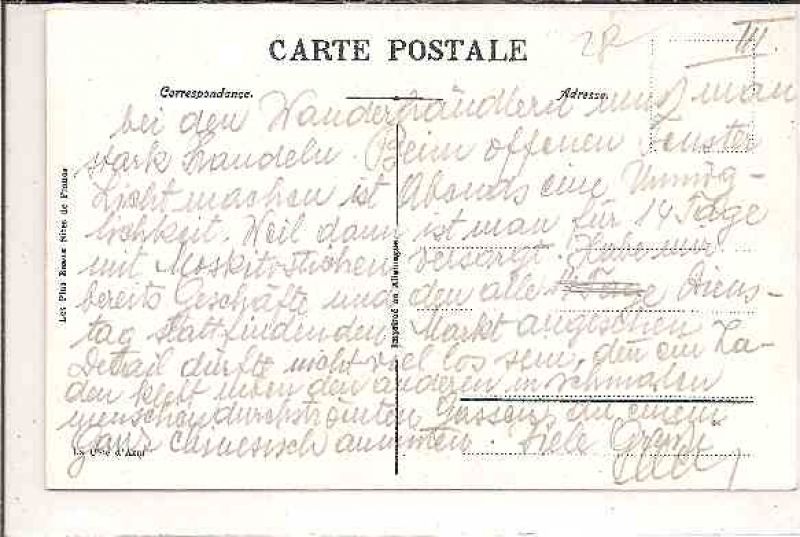 28
III.
CARTE POSTALE
Correspondance.
Adresse.
bei den Wanderhändlern muß man
stark handeln. Beim offenen Fenster
Licht machen ist Abends eine Unmög-
lichkeit. Weil dann ist man für 14 Tage
mit Moskitostichen versorgt. Habe mir
bereits Geschäfte und den alle Tage Diens-
tag stattfindenden Markt angesehen
Detail dürfte nicht viel los sein, denn ein La-
den klebt neben den anderen in schmalen
menschendurchströmten Gassen, die einem
ganz chinesisch anmuten. Viele Grüße
Les Plus Beaux Sites de France
Imprimé en Allemagne
La Côte d'Azur